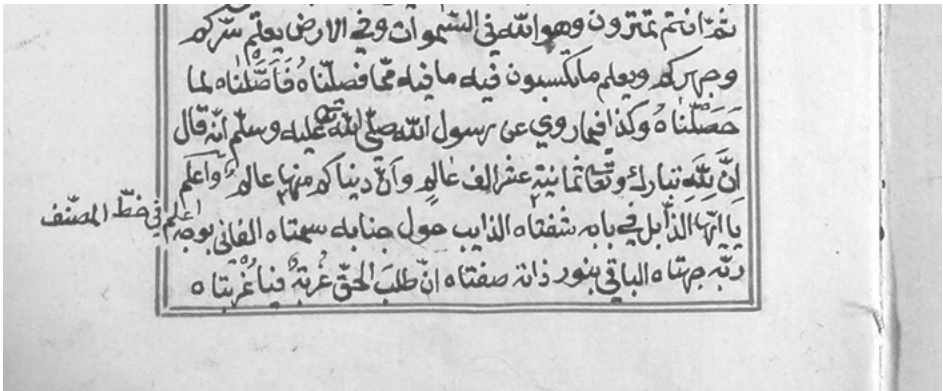 ثمّ انتم تمترون وهو الله في السّموات وفي الارض يعلم سرّكم
وجهركم ويعلم ما تكسبون فيه ما فيه ممّا فصلّناه فَاَصَّلْنَاه لما
حَصَّلْنَاهُ وكذا فيما روي عن رسول الله صلّى الله عليه وسلّم انّه قال
اِنَّ لِلّٰهِ تبارك وتعالى ثمانية عشر الف عالمٍ واَنّ دنياكم منها عالم وَاَعلَم
يا ايّها الذّابل في بابه شفتاه الذايب حول جنابه سمتاه الفاني بوجه
ربّه جهتاه الباقي بنور ذاته صفتاه انّ طلبَ الحقّ غُربَةٌ فيا غُربتاه
اعلم في خطّ المصنّف